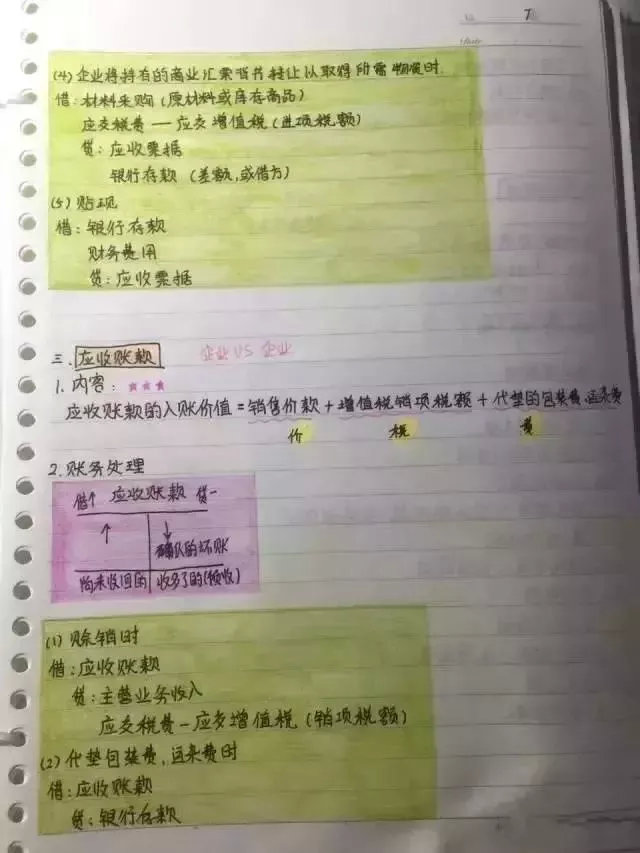 7
(4) 企业将持有的商业汇票背书转让以取得所需物资时.
借: 材料采购 (原材料或库存商品)
应交税费 — 应交增值税 (进项税额)
贷: 应收票据
银行存款 (差额,或借方)
(5) 贴现
借: 银行存款
财务费用
贷: 应收票据
三. 应收账款 企业 VS 企业
1. 内容: ★★★
应收账款的入账价值 = 销售价款 + 增值税销项税额 + 代垫的包装费、运杂费
价 税 费
2. 账务处理
借↑ 应收账款 贷-
↑ ↓
确认的坏账
尚未收回的 收多了的(预收)
(1) 赊销时
借: 应收账款
贷: 主营业务收入
应交税费 - 应交增值税 (销项税额)
(2) 代垫包装费,运杂费时
借: 应收账款
贷: 银行存款